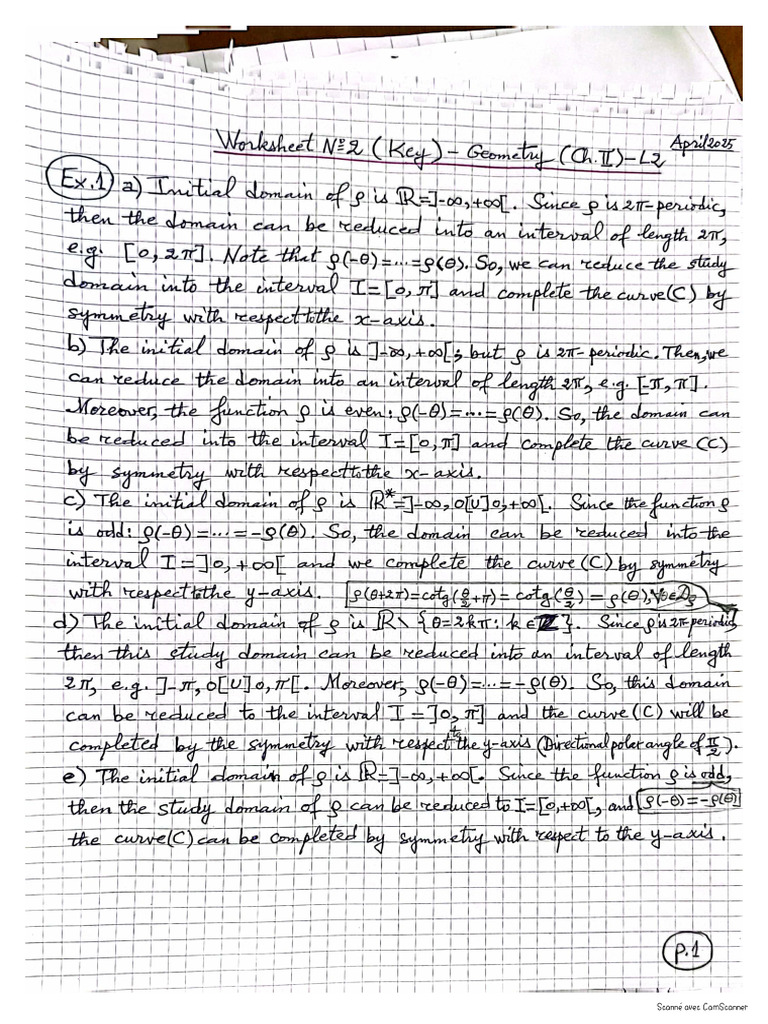 Worksheet Nº2 (Key) - Geometry (Ch.II) - L2 April 2025
Ex.1 a) Initial domain of ρ is ℝ=]-∞,+∞[. Since ρ is 2π-periodic,
then the domain can be reduced into an interval of length 2π,
e.g. [0, 2π]. Note that ρ(-θ)=...=ρ(θ). So, we can reduce the study
domain into the interval I=[0, π] and complete the curve(C) by
symmetry with respect to the x-axis.
b) The initial domain of ρ is ]-∞, +∞[; but ρ is 2π-periodic. Then, we
can reduce the domain into an interval of length 2π, e.g. [-π, π].
Moreover, the function ρ is even: ρ(-θ)=...=ρ(θ). So, the domain can
be reduced into the interval I=[0, π] and complete the curve (C)
by symmetry with respect to the x-axis.
c) The initial domain of ρ is ℝ*=]-∞, 0[∪]0, +∞[. Since the function ρ
is odd: ρ(-θ)=...=-ρ(θ). So, the domain can be reduced into the
interval I=]0, +∞[ and we complete the curve (C) by symmetry
with respect to the y-axis. ρ(θ+2π)=cotg(θ/2+π)=cotg(θ/2)=ρ(θ), ∀θ∈Dρ
d) The initial domain of ρ is ℝ\{θ=2kπ: k∈ℤ}. Since ρ is 2π periodic,
then this study domain can be reduced into an interval of length
2π, e.g. ]-π, 0[∪]0, π[. Moreover, ρ(-θ)=...=-ρ(θ). So, this domain
can be reduced to the interval I=]0, π] and the curve (C) will be
completed by the symmetry with respect to the y-axis (Directional polar angle of π/2).
e) The initial domain of ρ is ℝ=]-∞, +∞[. Since the function ρ is odd,
then the study domain of ρ can be reduced to I=[0, +∞[, and ρ(-θ)=-ρ(θ)
the curve(C) can be completed by symmetry with respect to the y-axis.
p.1
Scanné avec CamScanner